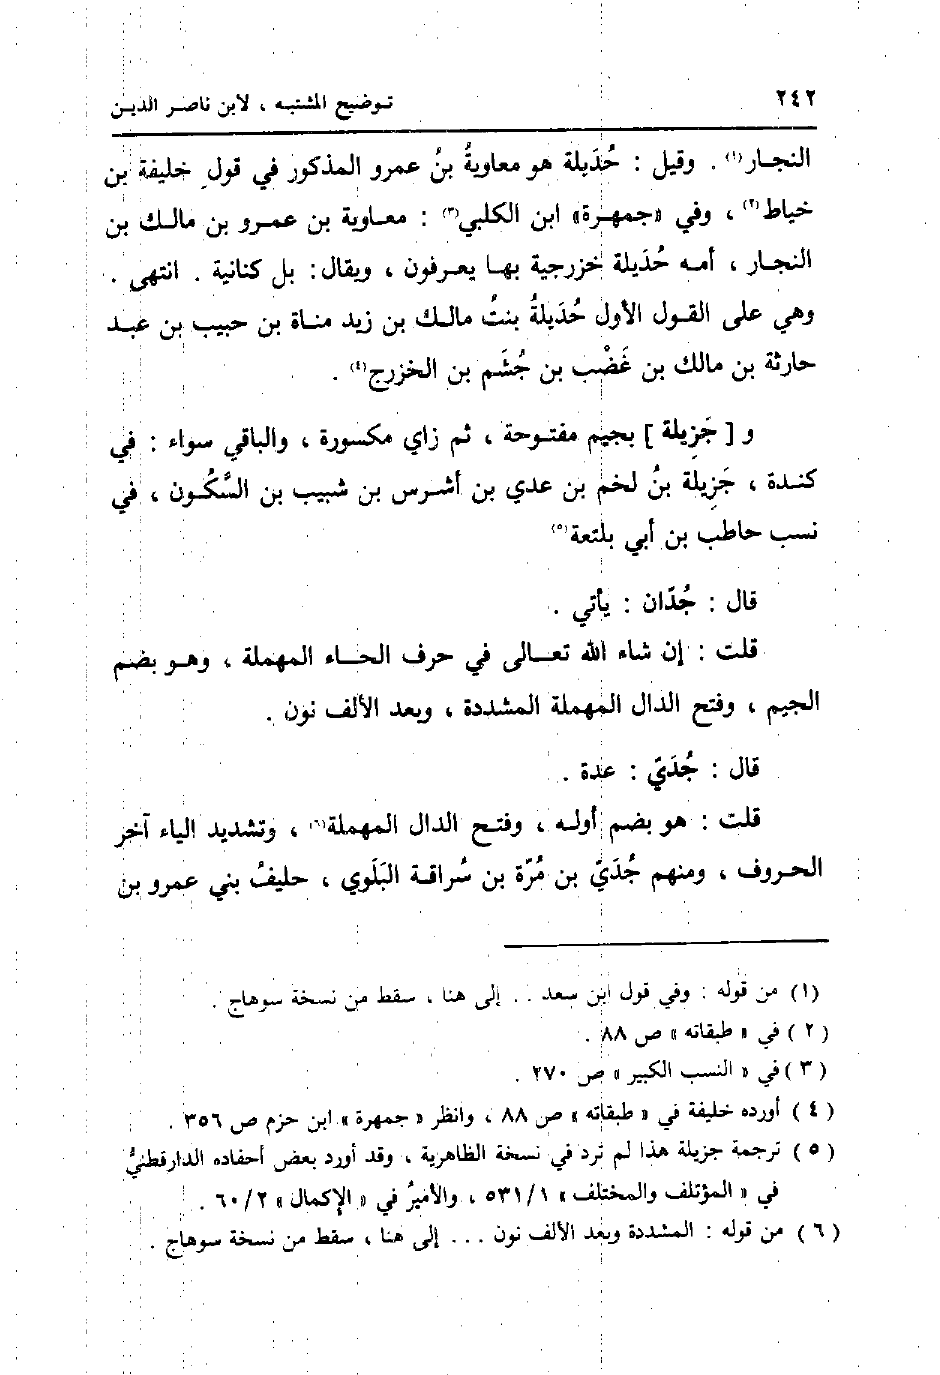 ٢٤٢
توضيح المشتبه ، لابن ناصر الدين
النجـار(١) . وقيل : حُدَيلة هو معاويةُ بنُ عمرو المذكور في قول خليفة بن
خياط(٢) ، وفي «جمهـرة» ابن الكلبي(٣) : معـاوية بن عمـرو بن مالـك بن
النجـار ، أمـه حُدَيلة خزرجية بهـا يعـرفون ، ويقال: بل كنانية . انتهى .
وهي على القـول الأول حُدَيلةُ بنتُ مالـك بن زيد منـاة بن حبيب بن عبـد
حارثة بن مالك بن غَضْب بن جُشَم بن الخزرج(٤) .
و [ جَزِيلة ] بجيم مفتـوحة ، ثم زاي مكسورة ، والباقي سواء : في
كنـدة ، جَزِيلة بنُ لخم بن عدي بن أشـرس بن شبيب بن السَّكُـون ، في
نسب حاطب بن أبي بلتعة(٥)
قال : جُدّان : يأتي .
قلت : إن شاء الله تعـالى في حرف الحـاء المهملة ، وهـو بضم
الجيم ، وفتح الدال المهملة المشددة ، وبعد الألف نون .
قال : جُدَيّ : عدة .
قلت : هو بضم أولـه ، وفتـح الدال المهملة(٦) ، وتشديد الياء آخر
الحـروف ، ومنهم جُدَيّ بن مُرّة بن سُراقـة البَلَوي ، حليفُ بني عمرو بن
(١) من قوله : وفي قول ابن سعد .. إلى هنا ، سقط من نسخة سوهاج .
( ٢ ) في « طبقاته » ص ٨٨ .
( ٣ ) في « النسب الكبير » ص ٢٧٠ .
( ٤ ) أورده خليفة في « طبقاته » ص ٨٨ ، وانظر « جمهرة » ابن حزم ص ٣٥٦ .
( ٥ ) ترجمة جزيلة هذا لم تَرد في نسخة الظاهرية ، وقد أورد بعض أحفاده الدارقطنيُّ
في « المؤتلف والمختلف » ٥٣١/١ ، والأميرُ في « الإكمال » ٦٠/٢ .
( ٦ ) من قوله : المشددة وبعد الألف نون ... إلى هنا ، سقط من نسخة سوهاج .